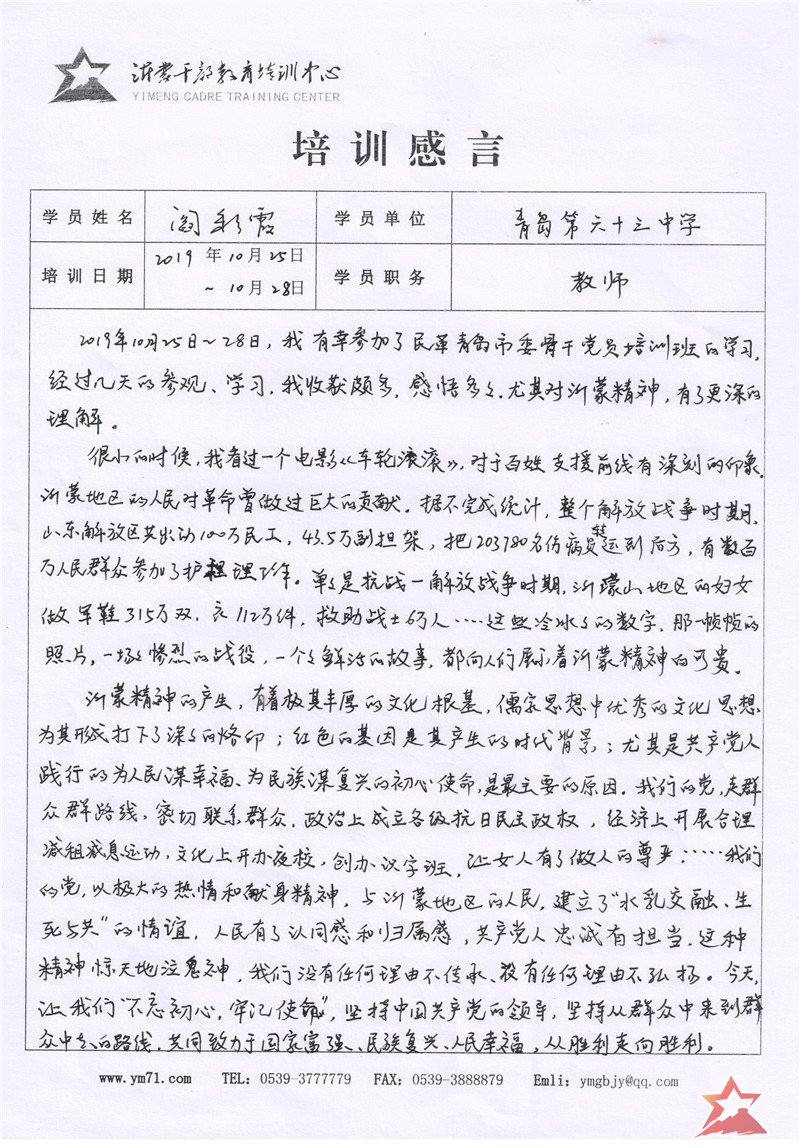 沂蒙干部教育培训中心
YIMENG CADRE TRAINING CENTER
培训感言
学员姓名 阎彩霞 学员单位 青岛第六十三中学
培训日期 2019年10月25日 ~10月28日 学员职务 教师
2019年10月25日~28日，我有幸参加了民革青岛市委骨干党员培训班的学习，
经过几天的参观、学习，我收获颇多，感悟多多。尤其对沂蒙精神，有了更深的
理解。
很小的时候，我看过一个电影《车轮滚滚》，对于百姓支援前线有深刻的印象。
沂蒙地区的人民对革命曾做过巨大的贡献。据不完成统计，整个解放战争时期，
山东解放区共出动100万民工，43.5万副担架，把203780名伤病员转运到后方，有数百
万人民群众参加了护理工作。单是抗战一解放战争时期，沂蒙山地区的妇女
做军鞋315万双，衣112万件，救助战士6万人……这些冰冷的数字，那一帧帧的
照片，一场场惨烈的战役，一个个鲜活的故事，都向人们展示着沂蒙精神的可贵。
沂蒙精神的产生，有着极其丰厚的文化根基，儒家思想中优秀的文化思想
为其形成打下了深深的烙印；红色的基因是其产生的时代背景；尤其是共产党人
践行的为人民谋幸福、为民族谋复兴的初心使命，是最主要的原因。我们的党，走群
众群路线，密切联系群众，政治上成立各级抗日民主政权，经济上开展合理
减租减息运动，文化上开办夜校，创办汉字班，让女人有了做人的尊严……我们
的党，以极大的热情和献身精神，与沂蒙地区的人民，建立了“水乳交融、生
死与共”的情谊，人民有了认同感和归属感，共产党人忠诚有担当。这种
精神惊天地泣鬼神，我们没有任何理由不传承、没有任何理由不弘扬。今天，
让我们“不忘初心，牢记使命”，坚持中国共产党的领导，坚持从群众中来到群
众中去的路线，共同致力于国家富强、民族复兴、人民幸福，从胜利走向胜利。
www.ym71.com TEL：0539-3777779 FAX：0539-3888879 Emli：ymgbjy@qq.com